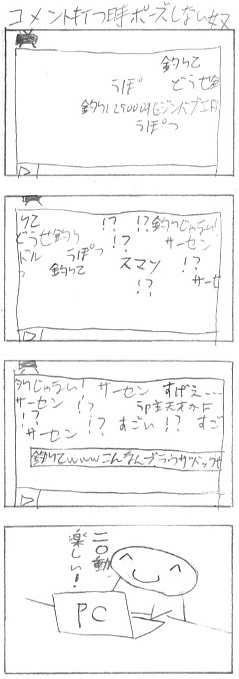 コメント打つ時ポーズしない奴
釣りて
うぽ どうせ釣
釣りに2500円ジンバブエド
うぽつ
りて !? !? 釣りじゃない!
どうせ釣り !? サーセン
ドル うぽつ スマソ !?
釣りて !? サーセ
釣りじゃない! サーセン すげえ…
サーセン !? うp主天才かよ
!? !? すごい !? すご
サーセン
釣りてwwwこんなん
二〇動
楽しい!
PC